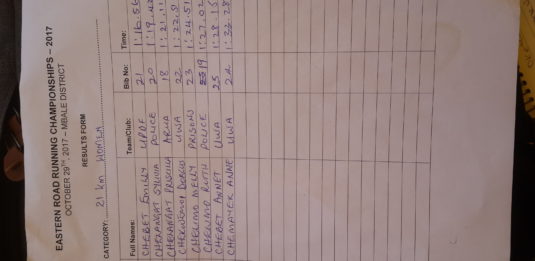 EASTERN ROAD RUNNING CHAMPIONSHIPS – 2017
OCTOBER 29TH, 2017 – MBALE DISTRICT
RESULTS FORM
CATEGORY: 21 km WOMEN
Full Names: Team/Club: Bib No: Time:
CHEBET EMILLY UPDF 21 1:16.56
CHEPANGAT SYLIVIA POLICE 20 1:19.42
CHEPANGAT PRISCILLA ARUA 18 1:21.11
CHEKWEMOI DORCUS UWA 22
CHELIMO MELLY PRISONS 23 1:24.51
CHELIMO RUTH POLICE 19 1:27.02
CHEBET ANNET UWA 25
CHEMAYEK ANNE UWA 24 1:32.28